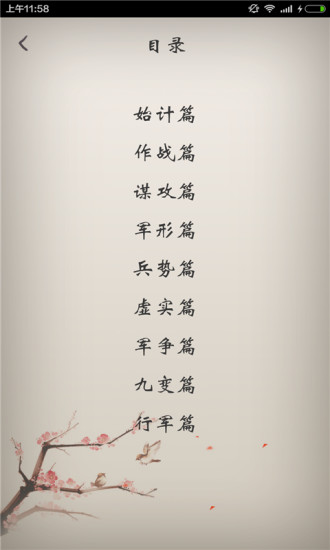 上午11:58
目录
始计篇
作战篇
谋攻篇
军形篇
兵势篇
虚实篇
军争篇
九变篇
行军篇